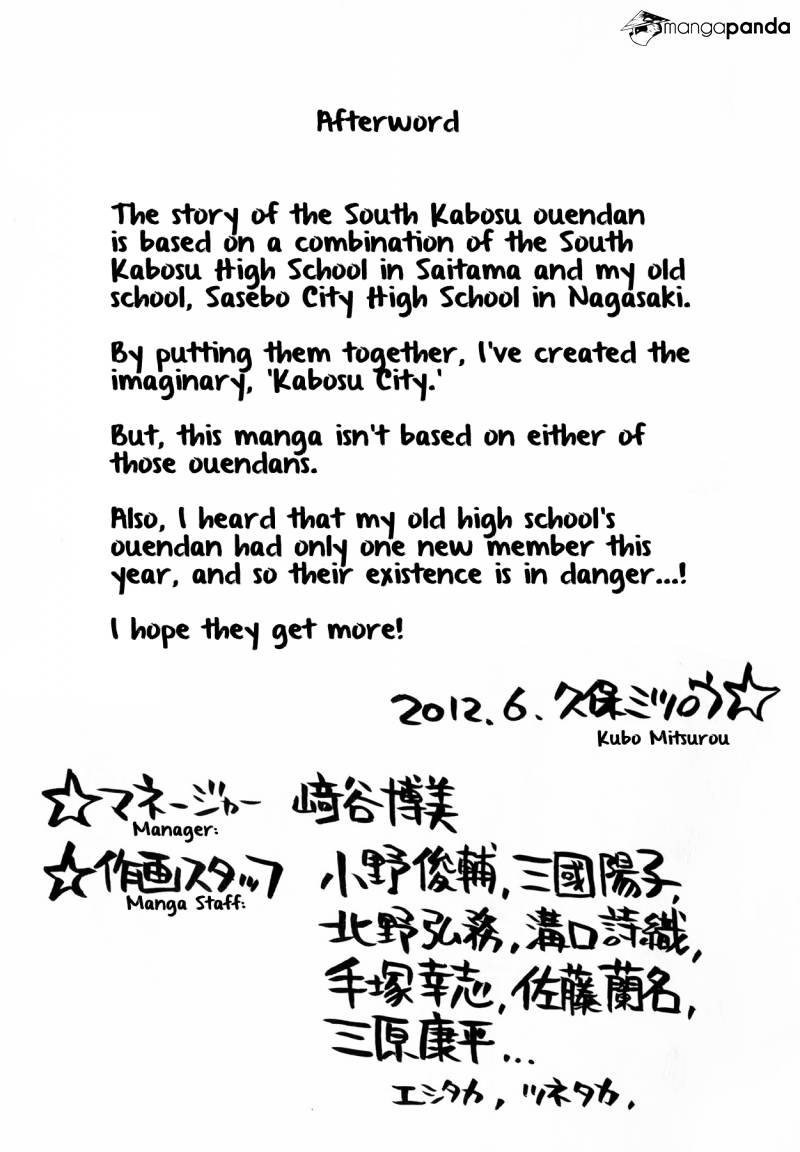 mangapanda
Afterword
The story of the South Kabosu ouendan
is based on a combination of the South
Kabosu High School in Saitama and my old
school, Sasebo City High School in Nagasaki.
By putting them together, I've created the
imaginary, 'Kabosu City.'
But, this manga isn't based on either of
those ouendans.
Also, I heard that my old high school's
ouendan had only one new member this
year, and so their existence is in danger...!
I hope they get more!
2012.6. 久保ミツロウ☆
Kubo Mitsurou
☆マネージャー 﨑谷博美
Manager:
☆作画スタッフ 小野俊輔,三國陽子,
Manga Staff:
北野弘務,溝口詩織,
手塚幸志,佐藤蘭名,
三原康平...
エシタカ, ツネタカ,